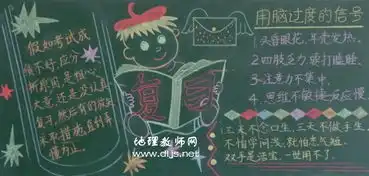 假如考试成
绩不好,应分
析原因,是粗心
大意,还是没认真
复习,然后有的放矢
采取措施,直到弄
懂为止。
复习
用脑过度的信号
1.头昏眼花,耳壳发热。
2.四肢乏力或打瞌睡。
3.注意力不集中。
4.思维不敏捷,反应慢
三天不念口生,三天不做手生。
不怕学问浅,就怕志气短。
双手是活宝,一世用不了。
地理教师网
www.dljs.net